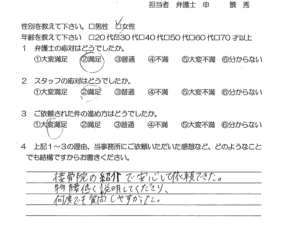 担当者 弁護士 申 景秀
性別を教えて下さい。 □男性 ☑女性
年齢を教えて下さい □20代□30代□40代□50代□60代□70才以上
1 弁護士の応対はどうでしたか。
①大変満足 ②満足 ③普通 ④不満 ⑤大変不満 ⑥分からない
2 スタッフの応対はどうでしたか。
①大変満足 ②満足 ③普通 ④不満 ⑤大変不満 ⑥分からない
3 ご依頼された件の進め方はどうでしたか。
①大変満足 ②満足 ③普通 ④不満 ⑤大変不満 ⑥分からない
4 上記1～3の理由、当事務所にご依頼いただいた感想など、どのようなこと
でも結構ですからお書きください。
接骨院の紹介で安心して依頼できた。
物腰低く説明してくださり、
何度でも質問しやすかった。